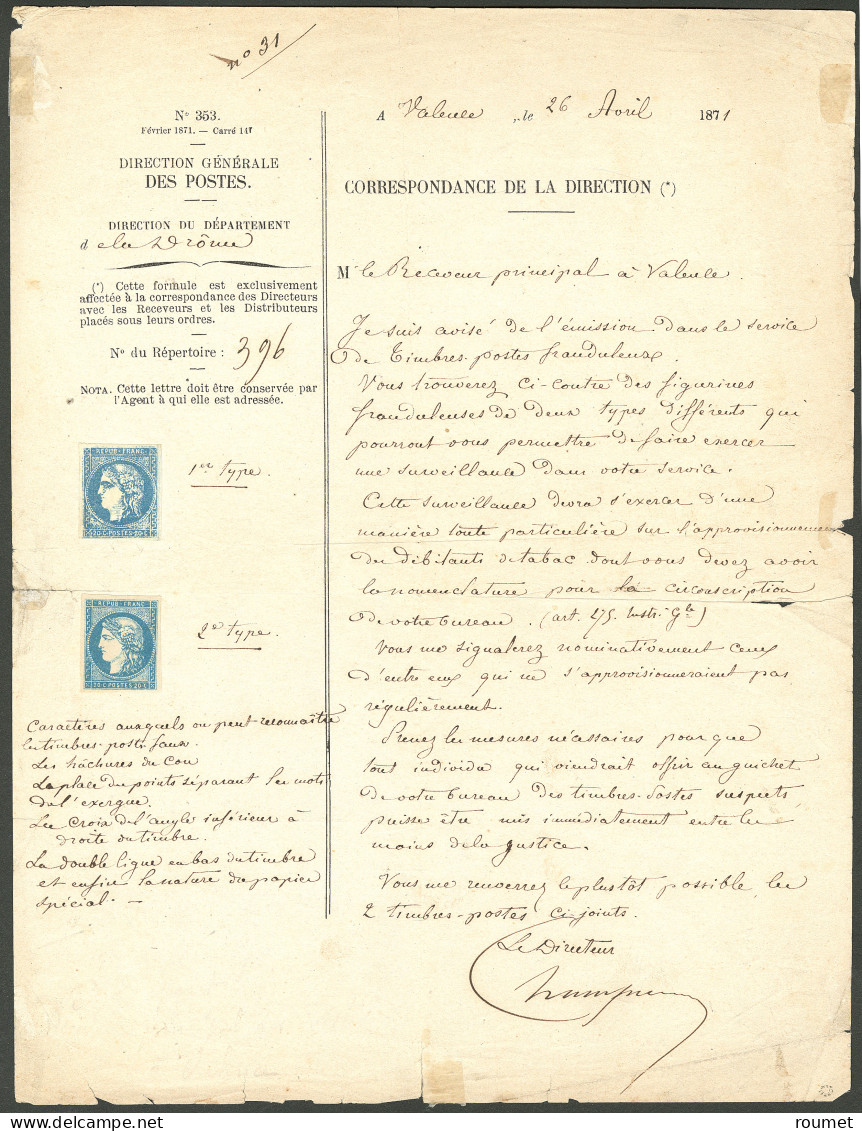 no 31
No 353.
Février 1871. — Carré 147
DIRECTION GÉNÉRALE
DES POSTES.
DIRECTION DU DÉPARTEMENT
d e la Drôme
(*) Cette formule est exclusivement
affectée à la correspondance des Directeurs
avec les Receveurs et les Distributeurs
placés sous leurs ordres.
No du Répertoire : 396
NOTA. Cette lettre doit être conservée par
l'Agent à qui elle est adressée.
REPUB · FRANC ·
20 C · POSTES · 20 C
1er type.
REPUB · FRANC
20 C · POSTES · 20 C
2e type.
Caractères auxquels on peut reconnaître
les timbres-poste faux.
Les hâchures du Cou
La place du points séparant les mots
de l'exergue.
La Croix de l'angle inférieur à
droite du timbre.
La double ligne en bas du timbre
et enfin la nature du papier
spécial. —
A Valence , le 26 Avril 1871
CORRESPONDANCE DE LA DIRECTION (*)
M le Receveur principal à Valence.
Je suis avisé de l'émission dans le service
de timbres-postes frauduleux.
Vous trouverez ci-contre des figurines
frauduleuses de deux types différents qui
pourront vous permettre de faire exercer
une surveillance dans votre service.
Cette surveillance devra s'exercer d'une
manière toute particulière sur l'approvisionnement
des débitants de tabac dont vous devez avoir
la nomenclature pour la circonscription
de votre bureau. (art. 275. Instr. Gle)
Vous me signalerez nominativement ceux
d'entre eux qui ne s'approvisionneraient pas
régulièrement.
Prenez les mesures nécessaires pour que
tout individu qui viendrait offrir au guichet
de votre bureau des timbres-postes suspects
puisse être mis immédiatement entre les
mains de la justice.
Vous me renverrez le plustôt possible les
2 timbres-postes ci-joints.
Le Directeur
roumet — delcampe.net